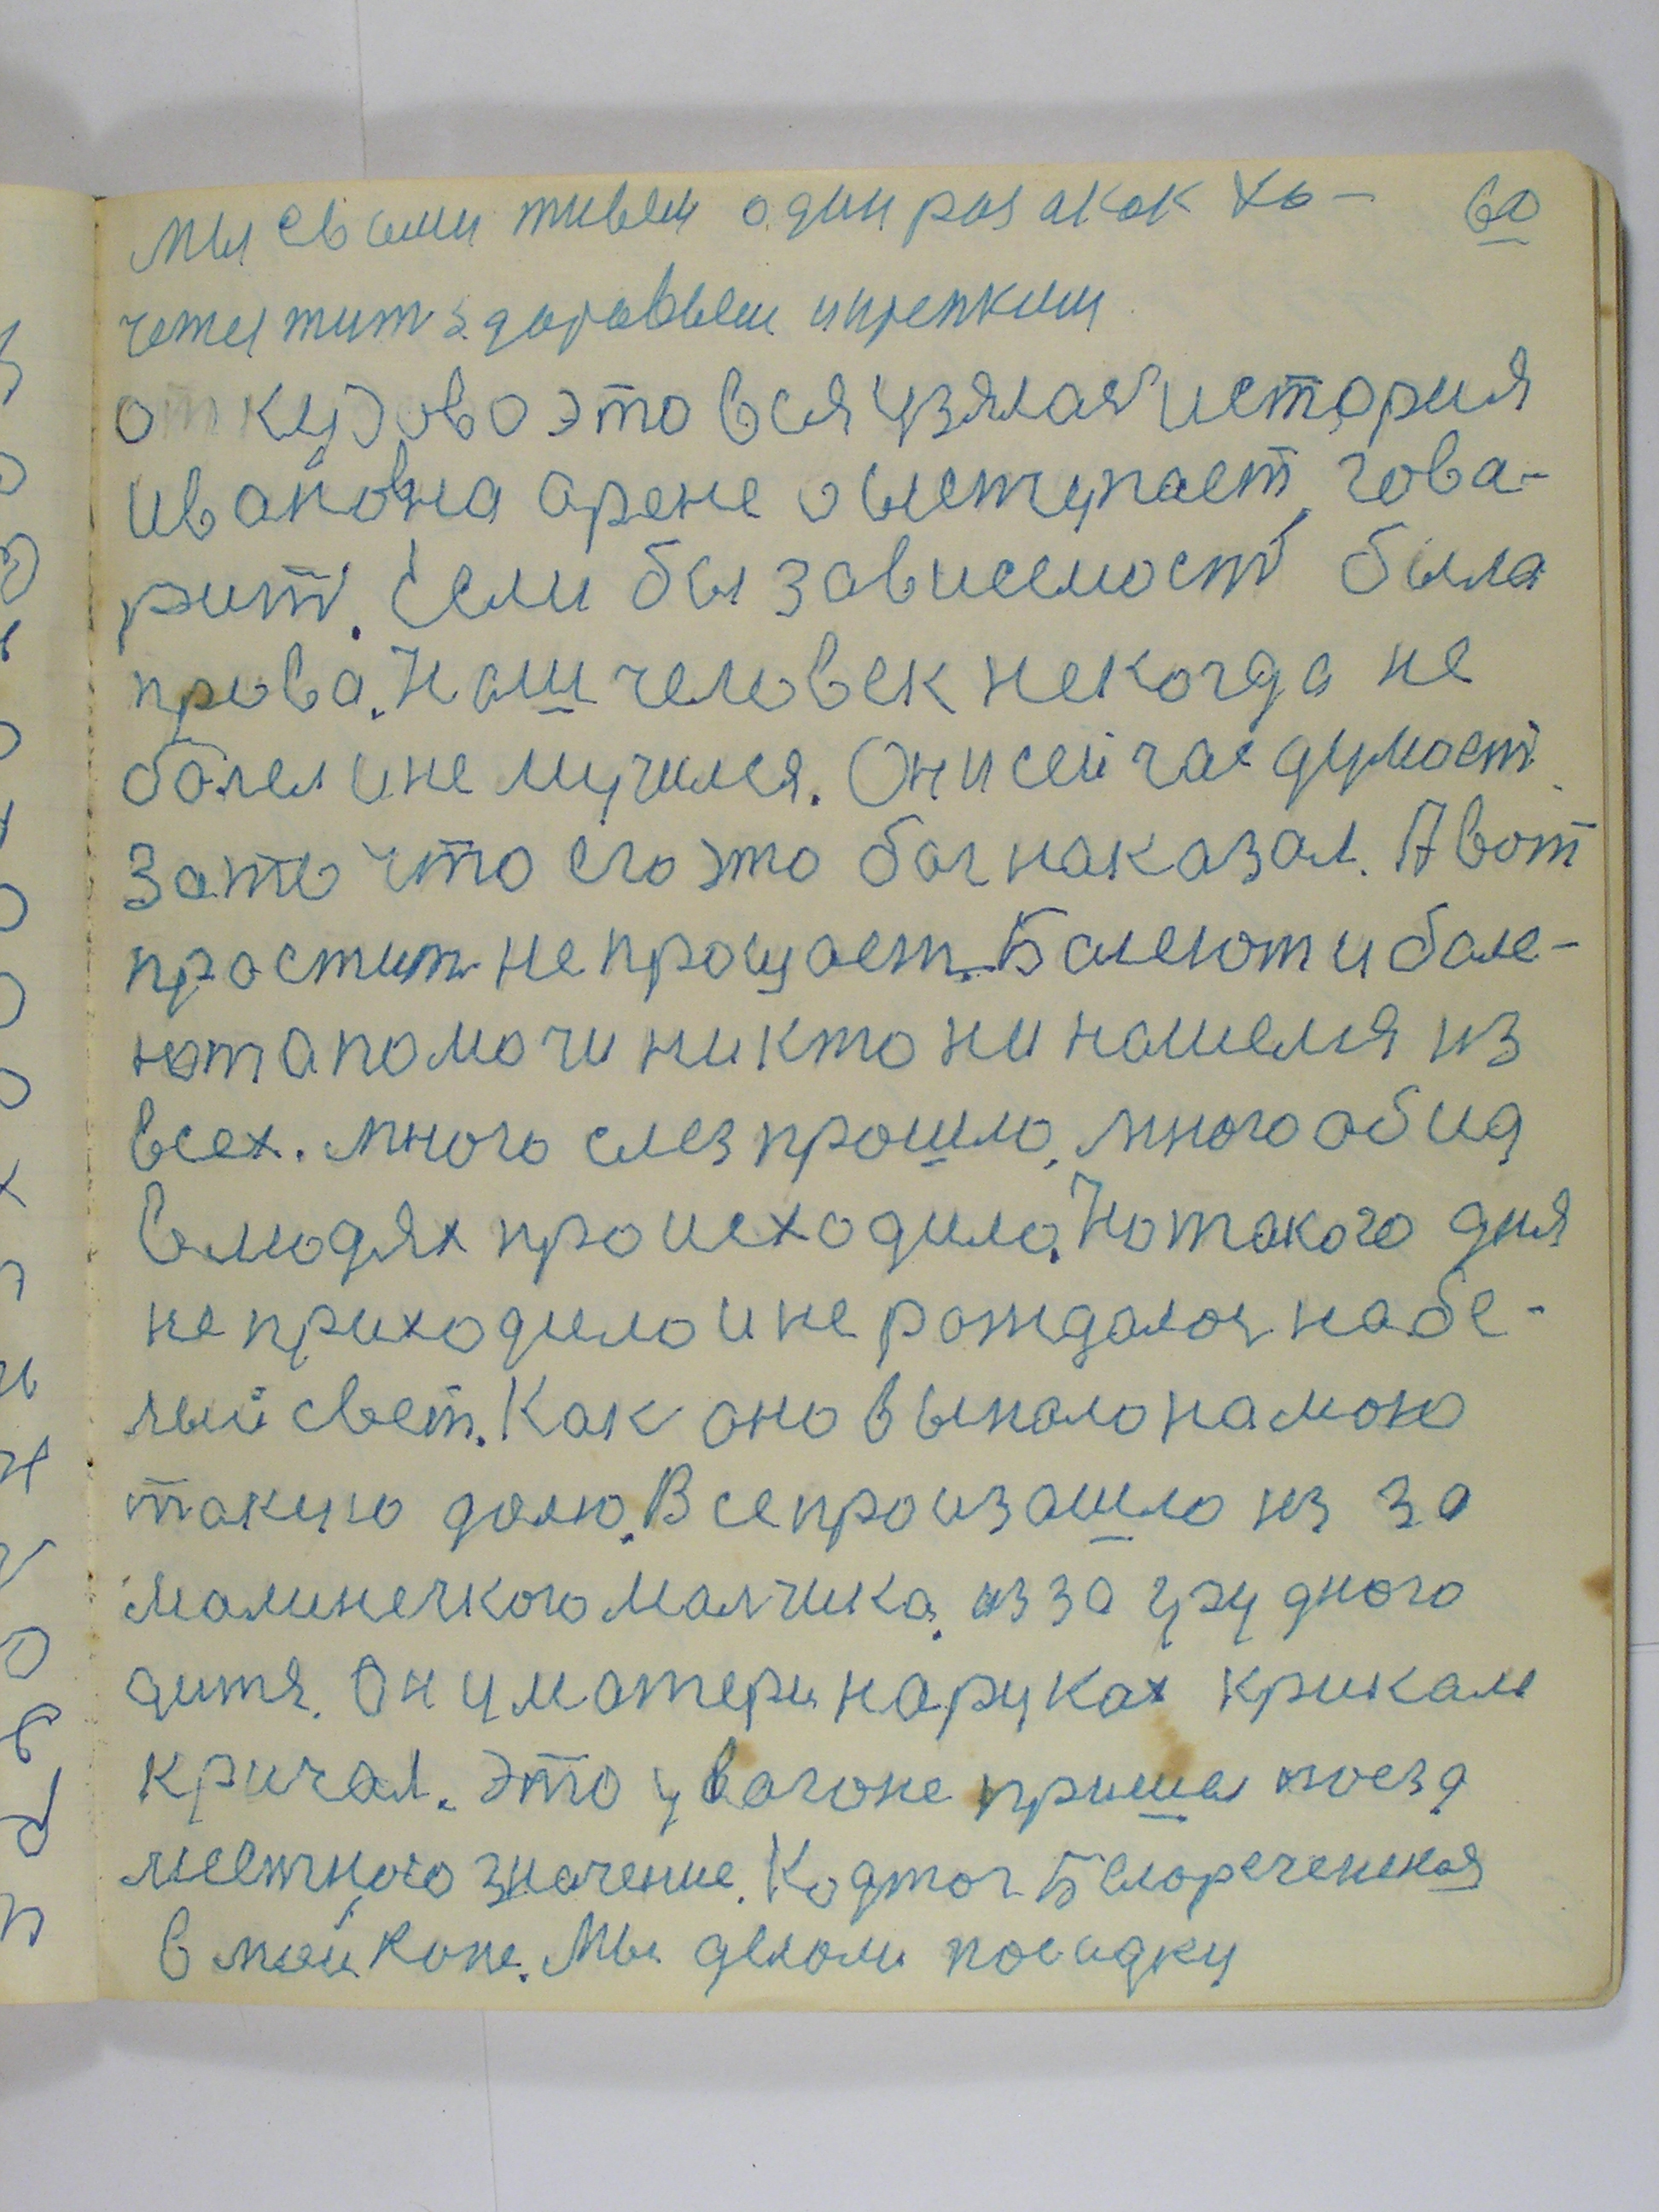 мы свами живем один раз акак хо- 60
четця жит здоровьем икрепким
откудова это вся узялася история
Ивановна арене выступает, гова-
рит. Если бы зависемост была
прова. Наш человек некогда не
болел ине мучился. Он исейчас думает
зато что его это бог наказал. А вот
простит не прощает. Балеют и боле-
ют апомочи никто ни нашелся из
всех. много слез прошло, много обид
влюдях происходило. Но такого дня
не приходило ине рождалось набе-
лый свет. Как оно выпало на мою
такую долю. Все произашло из за
малинечкого малчика, из за грудного
дитя. Он у матери наруках криком
кричал. Это у вагоне приша поезд
местного значение. Белореченская
в майкопе. Мы делали посадку